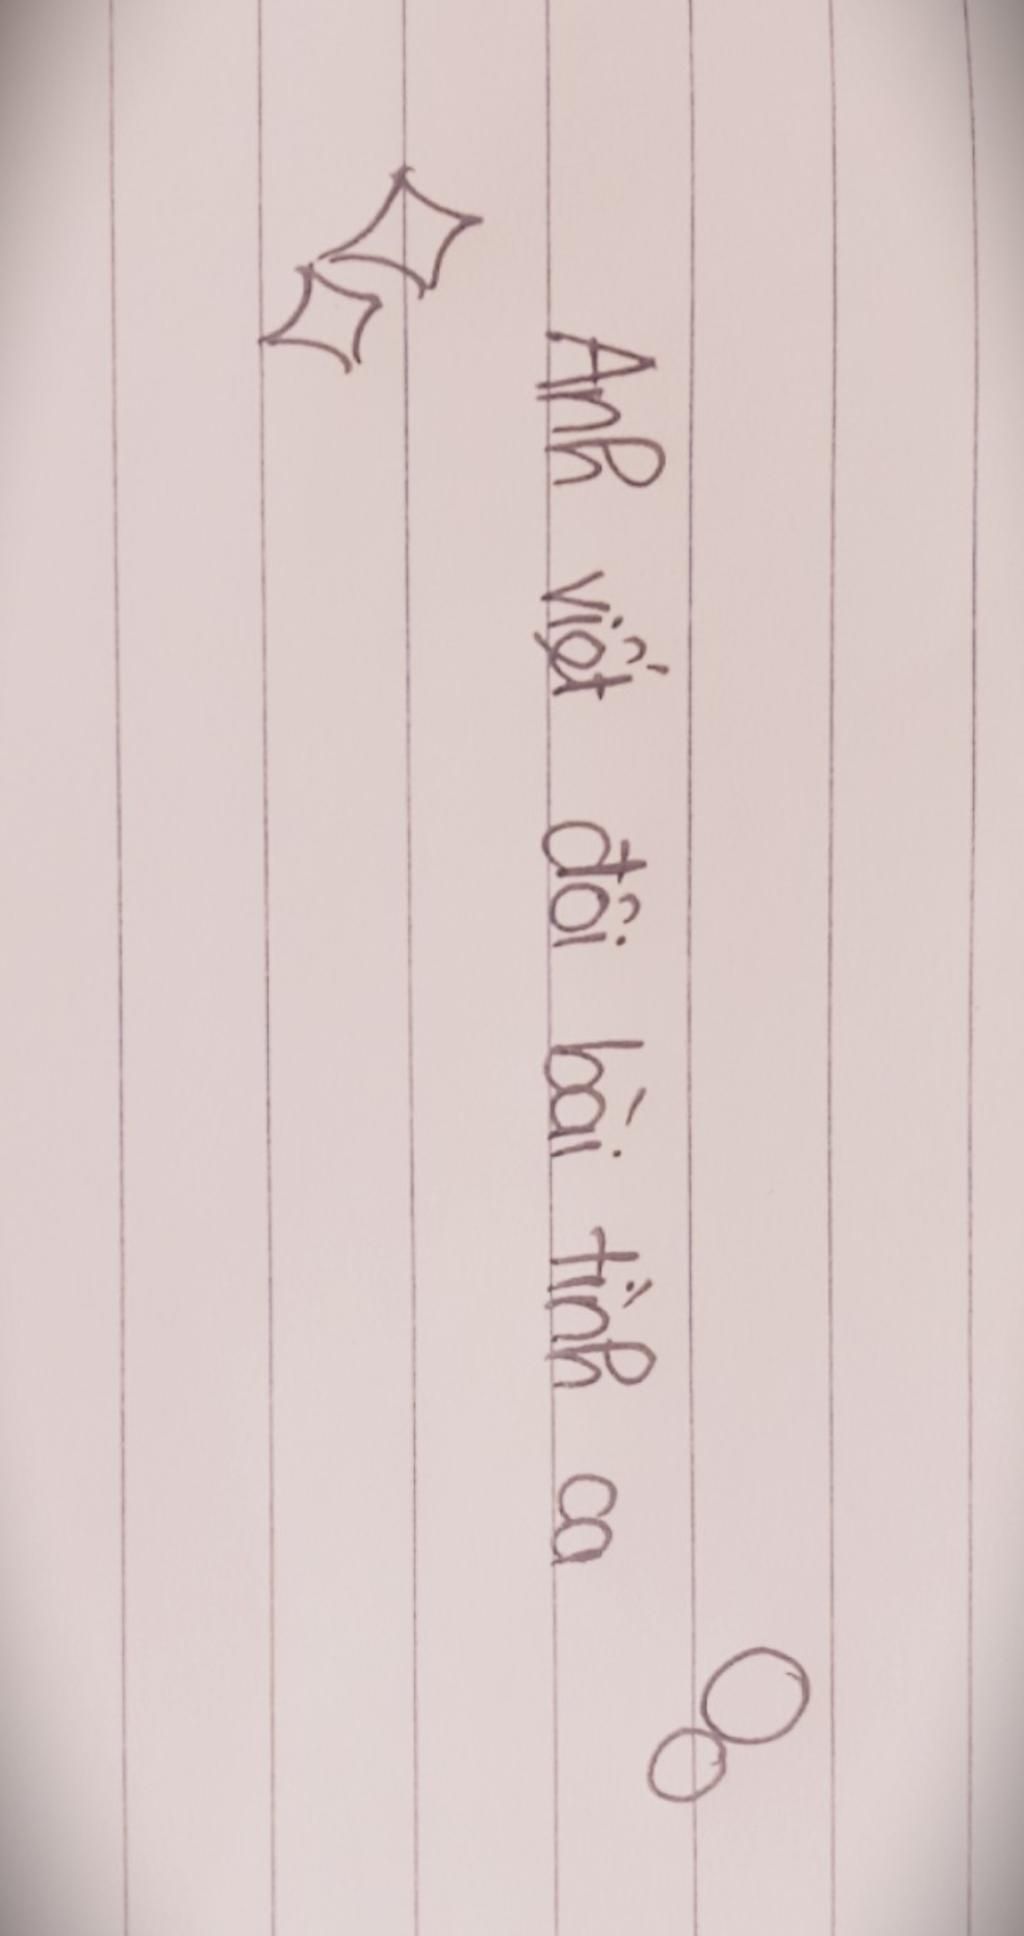 Anh viết đôi bài tình ca